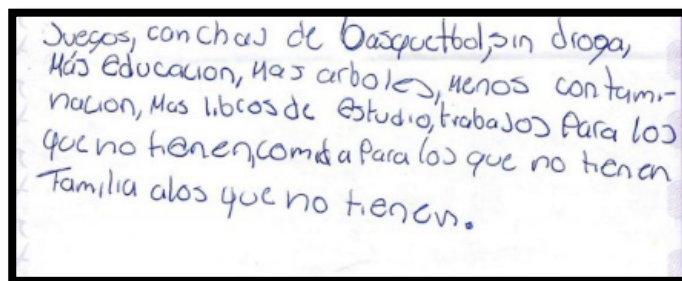 Juegos, conchas de basquetbol, sin droga,
Más educacion, Mas arboles, menos contami-
nacion, Mas libros de estudio, trabajos para los
que no tienen, comida para los que no tienen
Familia a los que no tienen.